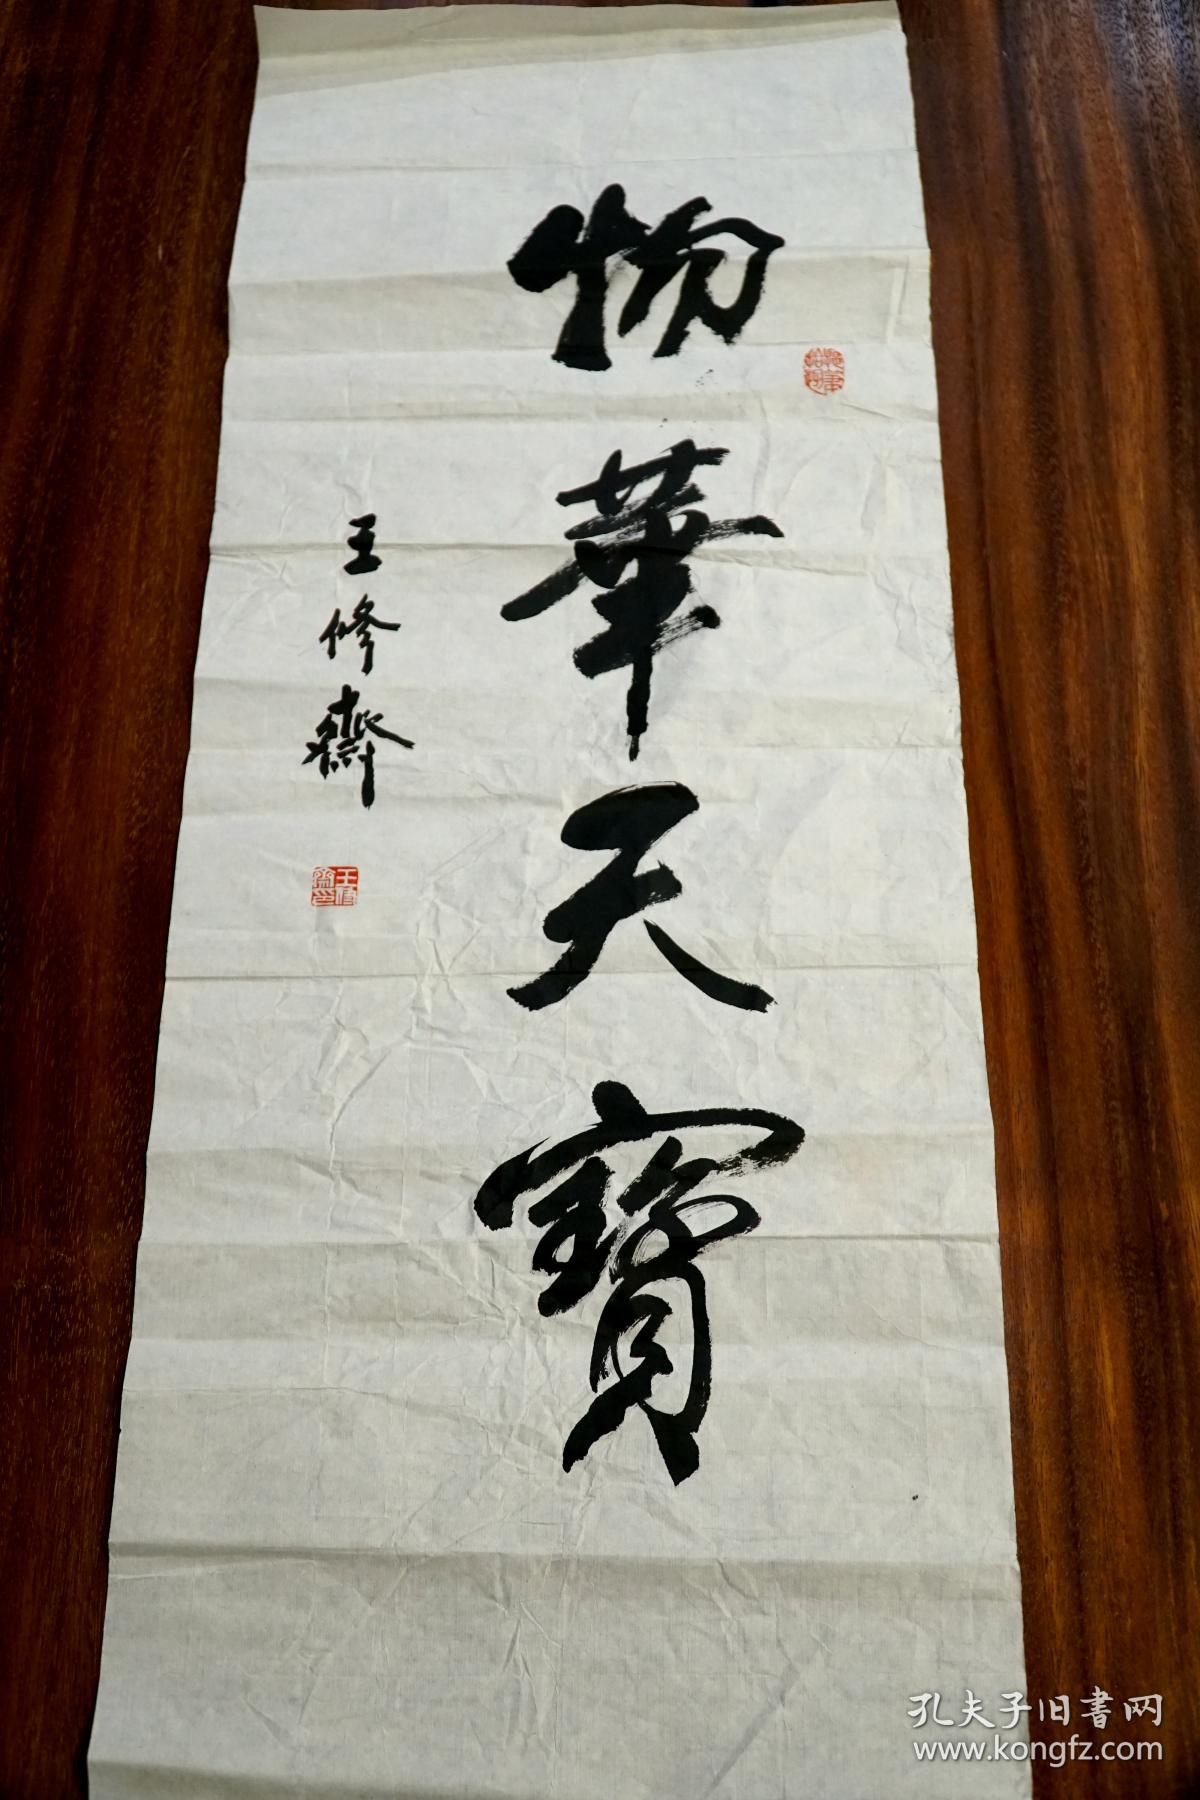 物華天寶
王修齋
孔夫子旧书网
www.kongfz.com